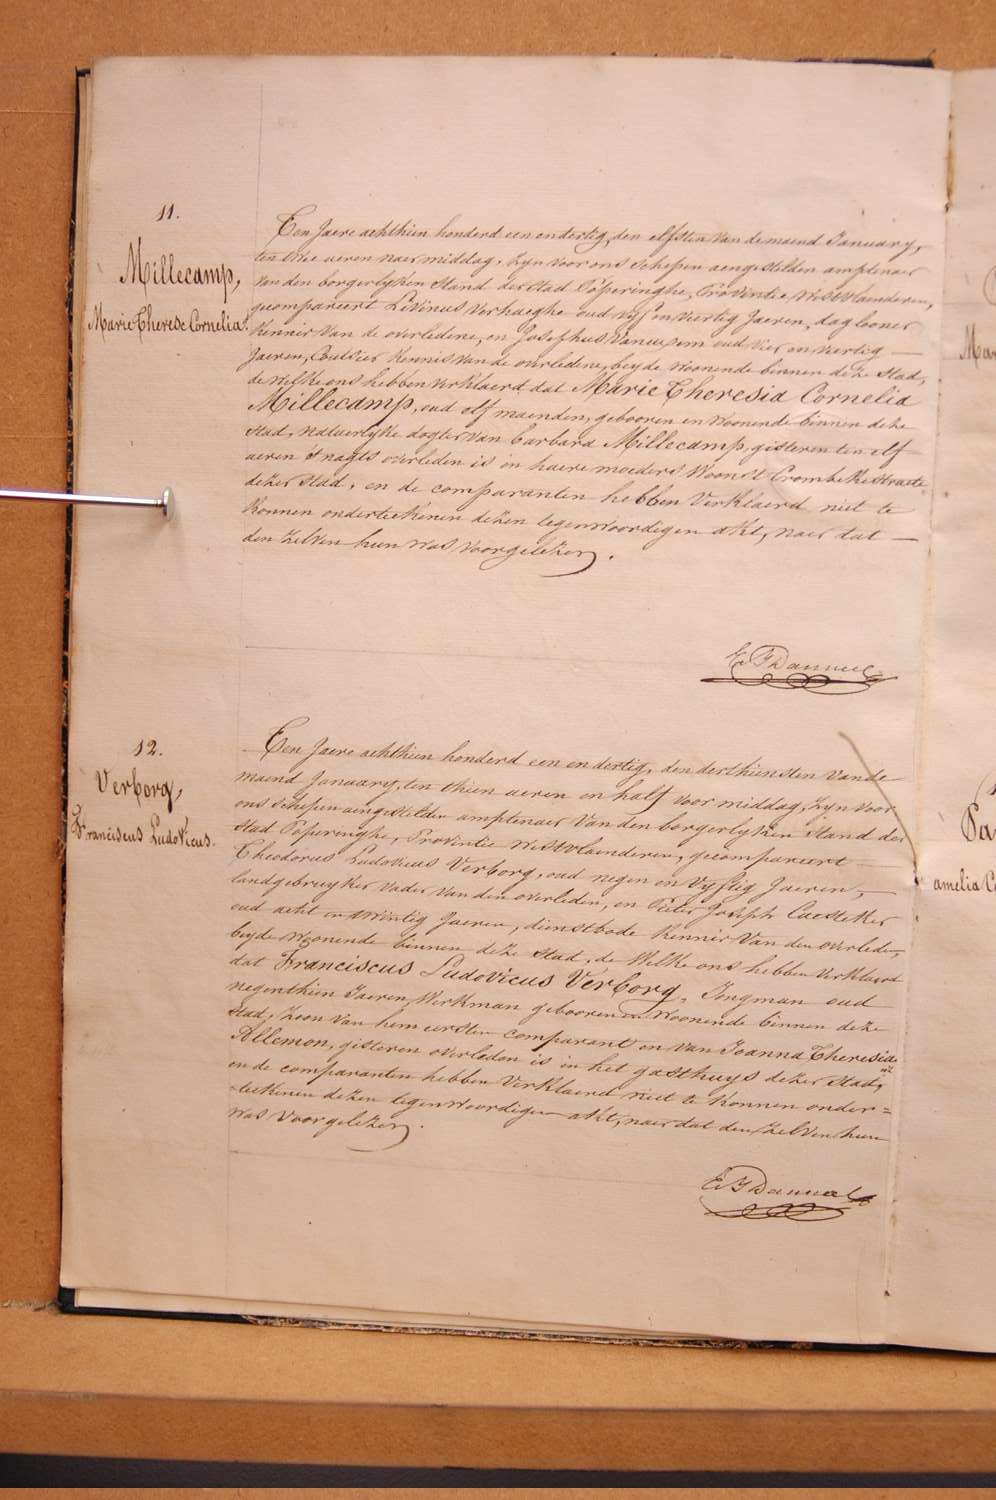 11.
Millecamp,
Marie Therese Cornelia.
Een Jaere achthien honderd een en dertig, den elfsten Van de maend January,
ten twee aeren naer middag, Zyn Voor ons Schepen aengestelden amptenaer
Van den borgerlyken Stand der Stad Poperinghe, Provintie Westvlaenderen,
gecompareert Livinus Verhaeghe oud vyf en Viertig Jaeren, daglooner
Kennir Van de overledene, en Josephus Vanuxem oud Vier en Viertig
Jaeren, Kennis Van de overledene, beyde Woonende binnen deze Stad,
de Welke ons hebben Verklaerd dat Marie Theresia Cornelia
Millecamp, oud elf maenden, gebooren en Woonende binnen deze
Stad, Natuerlyke dogter Van barbara Millecamp, gisteren ten elf
aeren S'nagts overleden is in haere moeders Woonst Crombekestraete
dezer Stad, en de comparanten hebben Verklaerd niet te
Konnen onderteekenen dezen tegenwoordigen akt, naer dat
den Zelven hun Was Voorgelezen.
E. F. Dannoel
12.
Verborg,
Franciscus Ludovicus.
Een Jaere achthien honderd een en dertig, den derthiensten Van de
maend January, ten thien aeren en half Voor middag, Zyn Voor
ons Schepen aengestelden amptenaer Van den borgerlyken Stand der
Stad Poperinghe, Provintie Westvlaenderen, gecompareert
Theodorus Ludovicus Verborg, oud negen en Vyftig Jaeren,
landgebruyker Vader Van den overleden, en Pieter Joseph Caestecker
oud acht en twintig Jaeren, dienstbode Kennir Van den overleden,
beyde Woonende binnen deze Stad, de Welke ons hebben Verklaerd
dat Franciscus Ludovicus Verborg, Jongman oud
negenthien Jaeren, Werkman gebooren en Woonende binnen deze
Stad, Zoon Van hem eersten comparant en Van Joanna Theresia
Allemon, gisteren overleden is in het gasthuys dezer Stad,
en de comparanten hebben Verklaerd niet te Konnen onder=
=teekenen dezen tegenwoordigen akt, naer dat den Zelven hun
Was Voorgelezen.
E. F. Dannoel
Mar
Pa
amelia Co